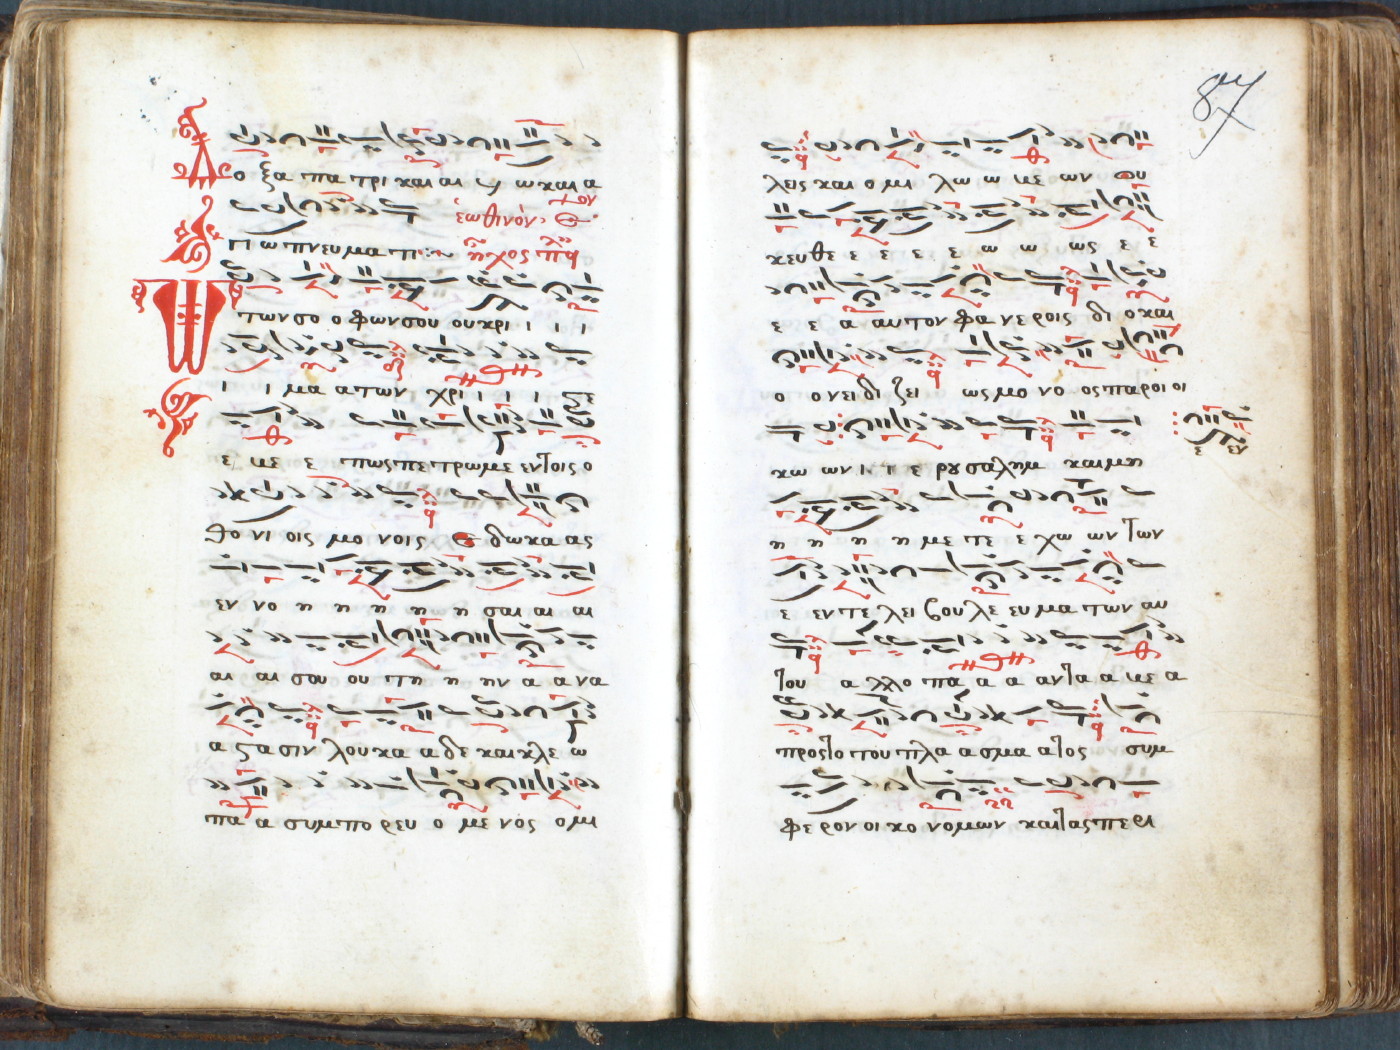 Δο ξα πα τρι και αι υι ω και α
γι ω πνευ μα τι εωθινον ε τον
ηχος πλ
Ω των σο ο φων σου ου κρι ι ι ι
ι ι μα α των χρι ι ι ι ι στε
ε με ε πως πε τρω με εν τοις ο
θο νι οις μο νοις ε δω κα ας
εν νο η η η η η σαι αι αι
αι αι σου ου τη η η ην α α να
α στα σιν λου κα α δε και κλε ω
πα α συμ πο ρευ ο με νος ο μι
87
λεις και ο μι λω ω με ων ου
κευ θε ε ε ε ε ω ω ως ε ε
ε ε α αυ τον φα νε ροις δι ο και
ο ο νει δι ζει ως μο νο ος πα ροι οι
κω ων ι τ ε ρου σα λημ και μη
ε εν
η η η η με τε ε χω ων των
ε εν τε λει βου λε ευ μα των αυ
του α λλο πα α α αν τα α με α
προς το του πλα α σμα α τος συμ
φε ρον οι κο νο μων και τας πε ρι